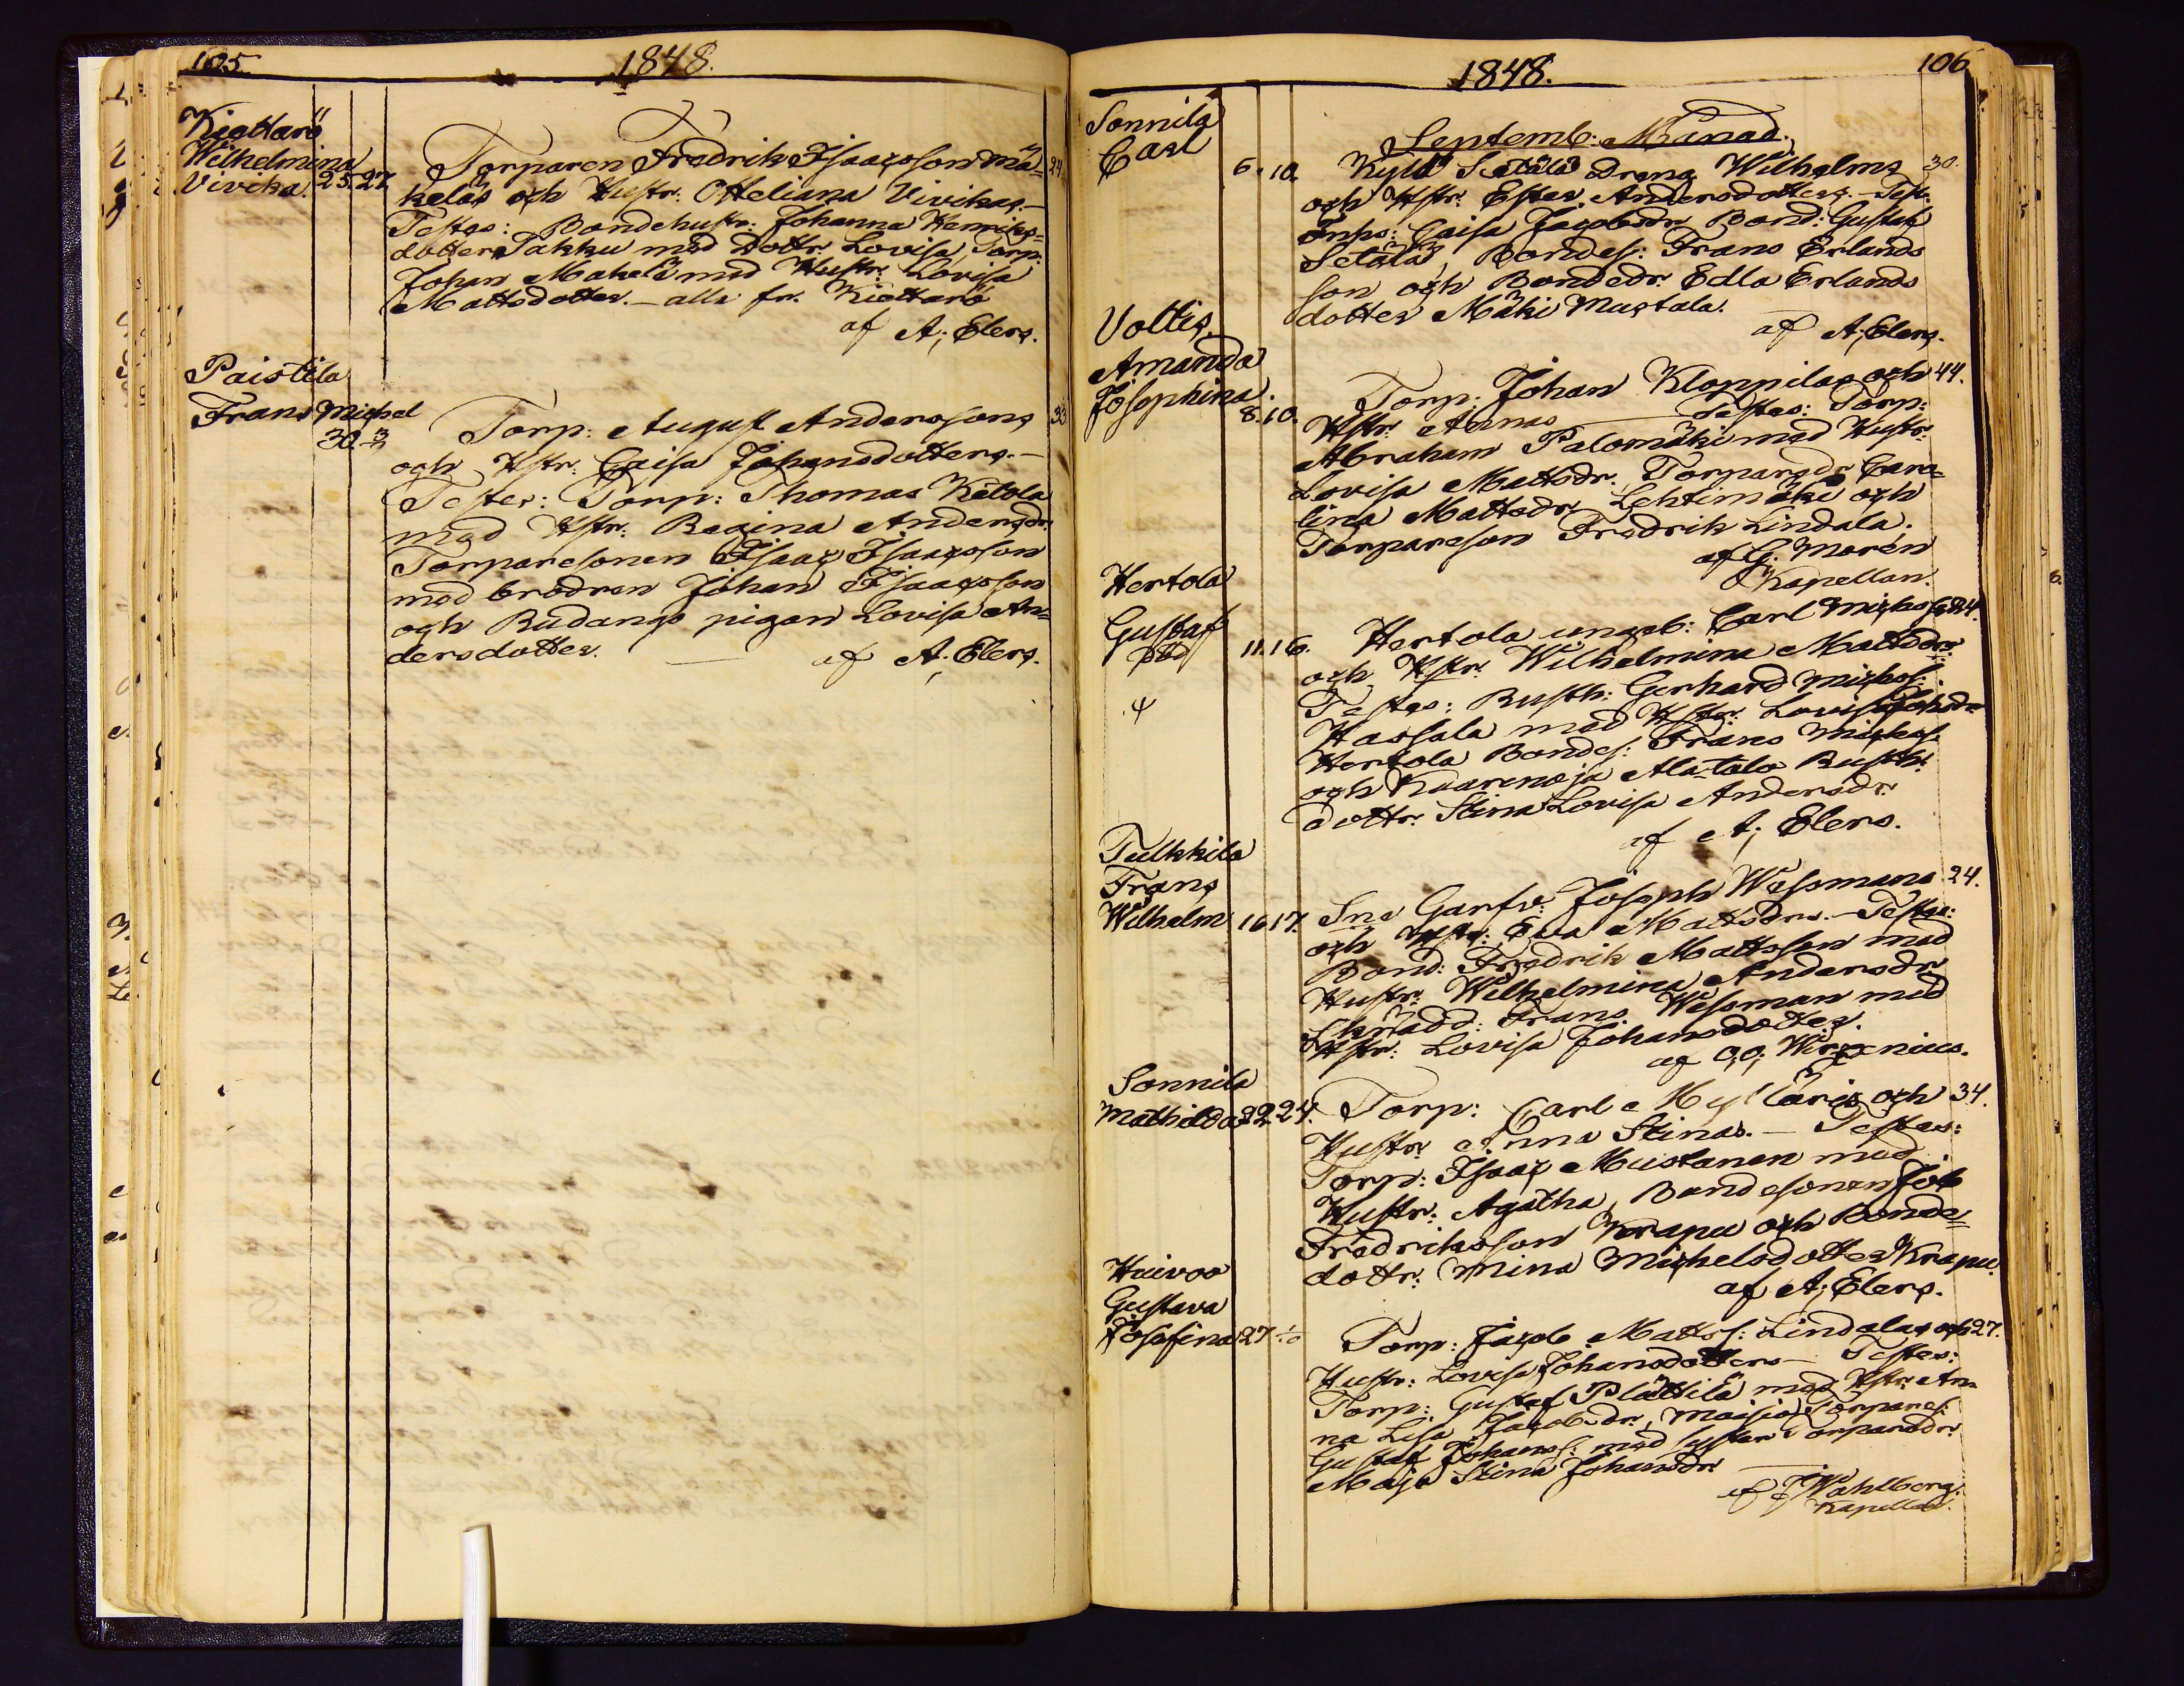 105.
1848.
Kiettarö
Wilhelmina
Vivika. 25. 27
Torparen Fredrik Isaacsson Mä- 24.
keläs och Hustr: Otteliana Vivikas.—
Testes: Bondehustr: Johanna Henriks=
dotter Sakku med dottr. Lovisa, Torp:
Johan Mäkelä med Hustr. Lovisa
Mattsdotter.— alla fr. Kiettarö
af A; Elers.
Paistila
Frans Michel
30. 3
Torp: August Anderssons 33
och Hstr: Caisa Johansdotters.—
Testes: Torp: Thomas Ketola
med Hstr: Regina Andersdr.
Torparesonen Isaac Isaacsson
med brodren Johan Isaacsson
och Rudangs pigan Lovisa An=
dersdotter. — af A. Elers.
1848.
106
Septemb: Månad.
Sonnila
Carl
6. 10. Kylä Setälä dreng Wilhelms 30.
och Hstr: Ester Andersdotters.— Test:
Caisa Jacobsdr. Bond: Gustaf
Setälä, Bondes: Frans Erlands
son och Bondedr. Edla Erlands
dotter Mäki Mustala.
af A; Elers.
Voltis
Amanda
Josephina.
8. 10. Torp: Johan Kloppilas och 44.
Hstr: Annas — Testes: Torp:
Abraham Palomäki med Hustr:
Lovisa Mattsdr. Torparedr Caro=
lina Mattsdr Lehtimäki och
Torpareson Fredrik Lindala.
af G. Morén
Kapellan.
Hertola
Gustaf
11. 16. Hertola ungab: Carl Michss: 24.
och Hstr: Wilhelmina Mattsdr:
Testes: Rusth: Gerhard Michss:
Hassala med Hstr: Lovisa
Hertola Bondes: Frans Michss:
och Kaarenoja Ala-talo Rusth:
dottr: Stina Lovisa Andersdr.
af A; Elers.
Tulkkila
Frans
Wilhelm 16 17. Sne Garfv: Joseph Wessmans 24.
och Hstr: Eva Mattsdrs.— Testes:
Bond: Fredrik Mattsson med
Hustr: Wilhelmina Andersdr
Frans Wessman med
Hstr: Lovisa Johansdotter.
af O; O; Wirzenius.
Sonnila
Mathilda 22 24. Torp: Carl Mylläris och 34.
Hustr: Anna Stinas.— Testes:
Torp: Isaac Mustanen med
Hustr: Agatha, Bondesonen Job
Fredriksson Krapu och Bonde=
dottr: Mina Michelsdotter Krapu.
af A; Elers.
Huivoo
Gustava
Josefina 27 Torp: Jacob Mattss: Lindalas och 27.
Hustr: Lovisa Johansdotters— Testes:
Torp: Gustaf Plättilä med Hstr: An=
na Lisa Jacobsdr, Maisio Torpares:
Gustaf Johanss: med syster Torparedr:
Maja Stina Johansdr.
af Wahlberg.
Kapellan.